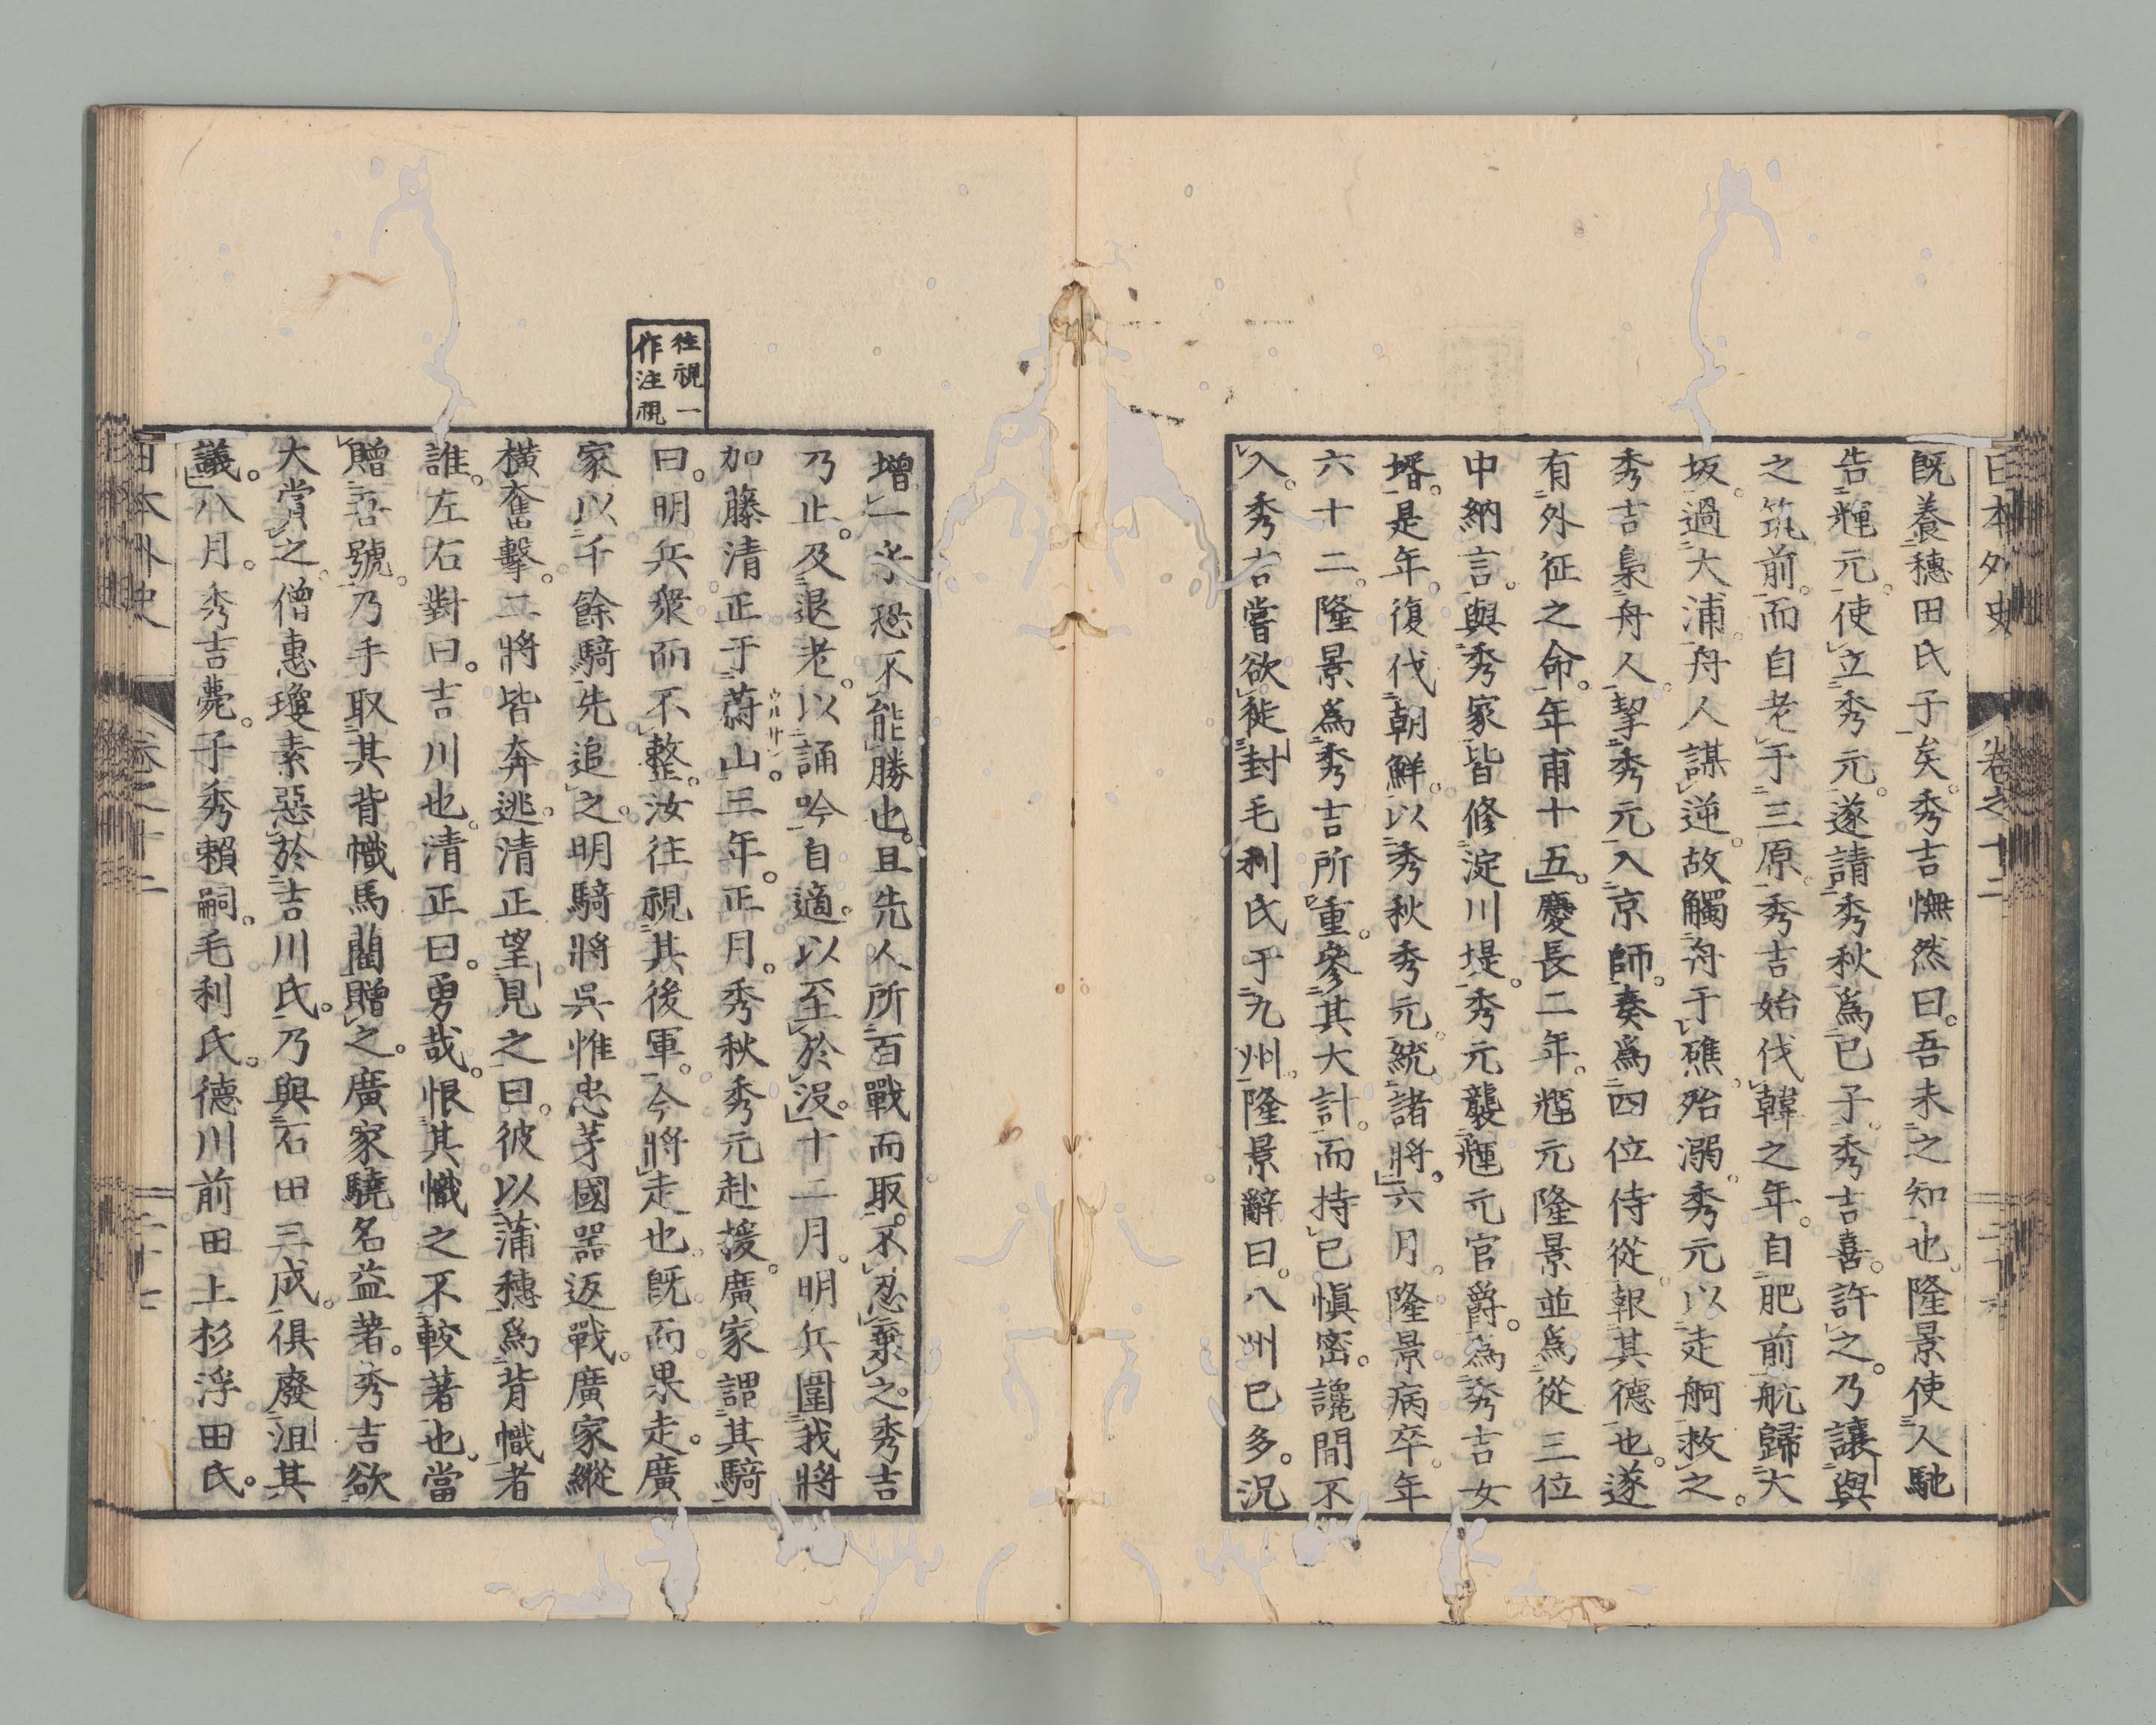 日本外史
卷之十二
既養穗田氏子矣。秀吉憮然曰。吾未之知也。隆景使人馳
告輝元。使立秀元。遂請秀秋爲已子。秀吉喜。許之。乃讓與
之筑前。而自老于三原。秀吉始伐韓之年。自肥前航歸大
坂。過大浦。舟人謀逆。故觸舟于礁。殆溺。秀元以走舸救之。
秀吉梟舟人。挈秀元入京師。奏爲四位侍從。報其德也。遂
有外征之命。年甫十五。慶長二年。輝元隆景並爲從三位
中納言。與秀家皆修淀川堤。秀元襲輝元官爵。爲秀吉女
壻。是年。復伐朝鮮。以秀秋秀元。統諸將。六月。隆景病卒。年
六十二。隆景爲秀吉所重。參其大計。而持已愼密。讒間不
入。秀吉嘗欲徙封毛利氏于九州。隆景辭曰。八州已多。況
増一乎。恐不能勝也。且先人所百戰而取。不忍棄之。秀吉
乃止。及退老。以誦吟自適。以至於沒。十二月。明兵圍我將
加藤清正于蔚山。三年。正月。秀秋秀元赴援。廣家謂其騎
ウルサン
曰。明兵衆而不整。汝往視其後軍。今將走也。既而果走。廣
家以千餘騎先追之。明騎將呉惟忠茅國器返戰。廣家縱
橫奮擊。二將皆奔逃。清正望見之曰。彼以蒲穗爲背幟者
誰。左右對曰。吉川也。清正曰。勇哉。恨其幟之不較著也。當
贈吾號。乃手取其背幟馬藺贈之。廣家驍名益著。秀吉欲
大賞之。僧惠瓊素惡於吉川氏。乃與石田三成。俱廢沮其
議。八月。秀吉薨。子秀賴嗣。毛利氏。德川前田上杉浮田氏。
往視一
作注視
日本外史
卷之十二